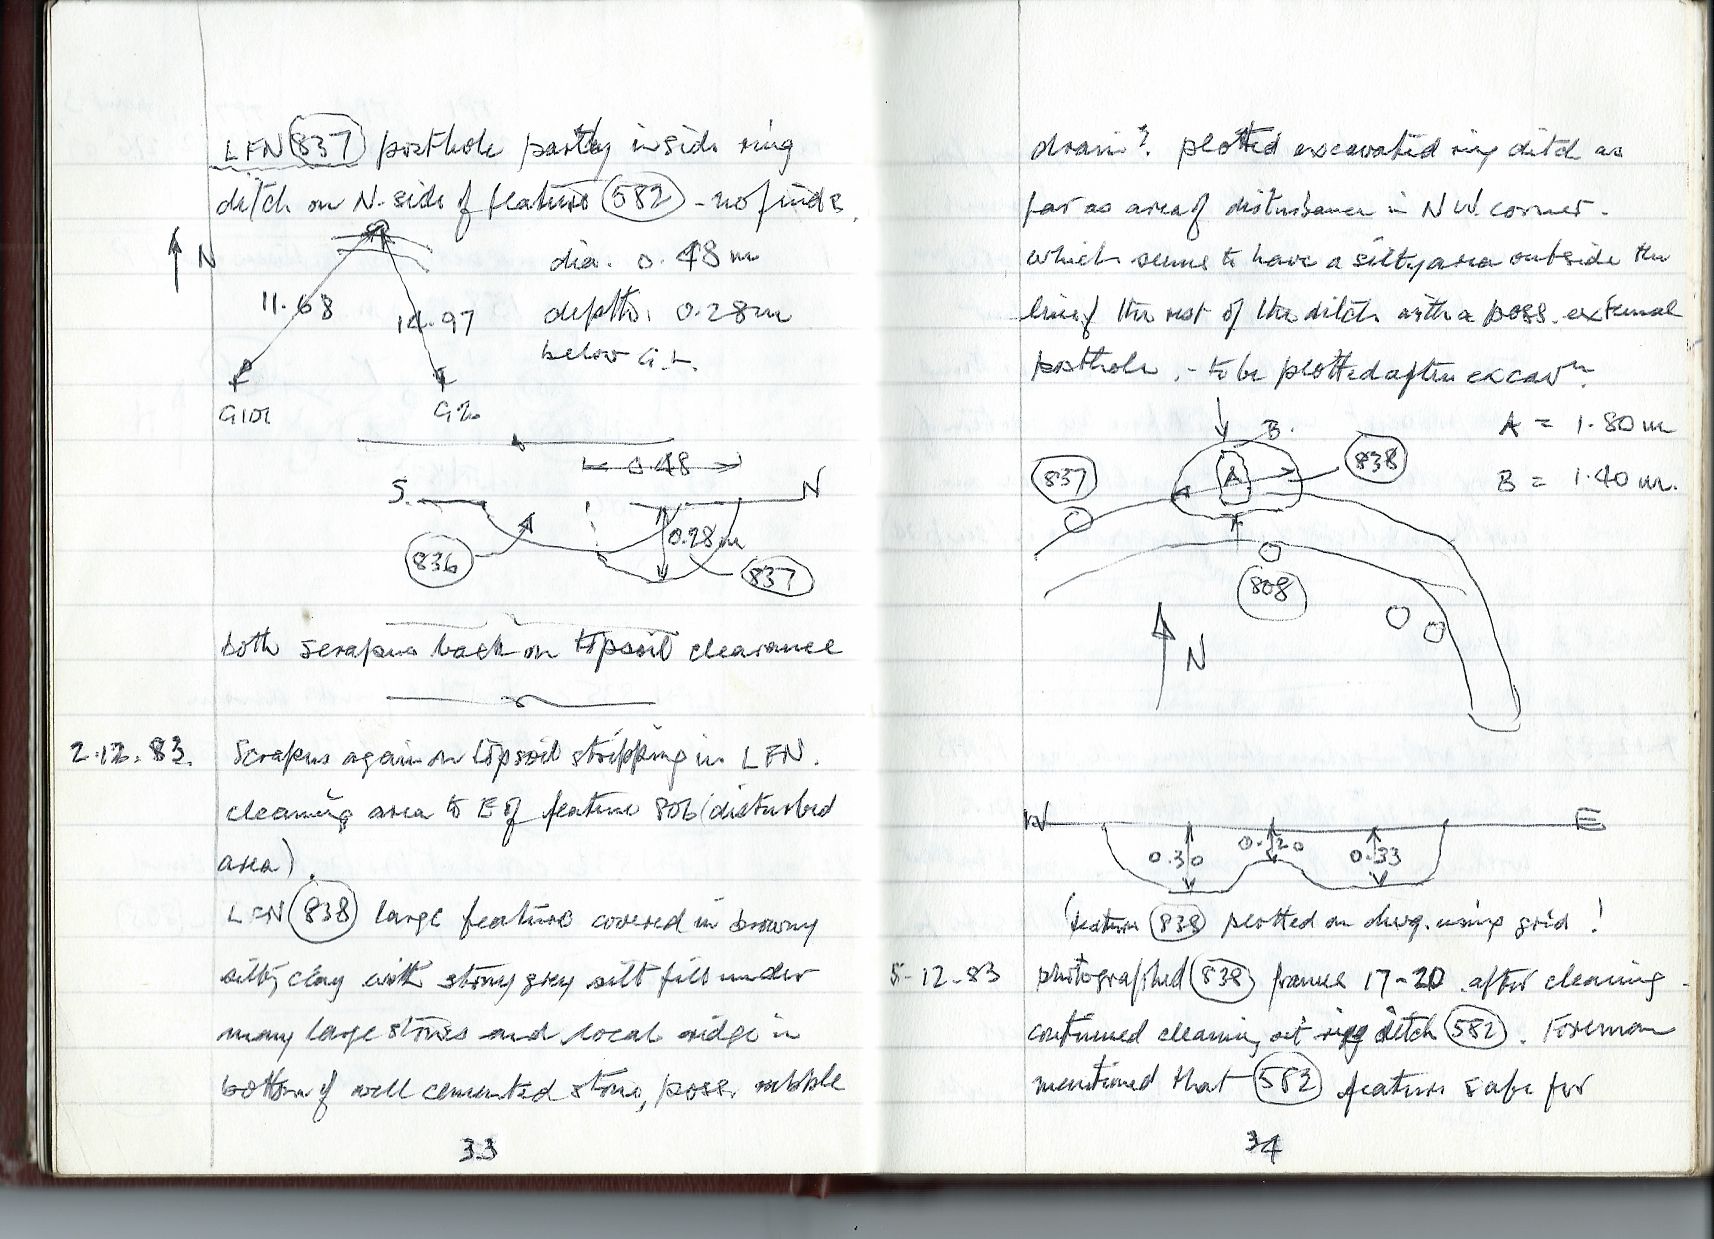 LFN 837 posthole partly inside ring
ditch on N. side of feature 582 - no finds.
N
dia. 0.48 m
11.68
14.97
depth. 0.28m
below G.L.
G101
G2
0.48
S.
N
0.28m
836
837
both scrapers back on topsoil clearance
2.12.83.
Scrapers again on topsoil stripping in LFN.
cleaning area to E of feature 806 (disturbed
area).
LFN 838 large feature covered in browny
silty clay with stony grey silt fill under
many large stones and local ridge in
bottom of well cemented stone, poss. rubble
33
drain? plotted excavated ring ditch as
far as area of disturbance in NW. corner.
which seems to have a silty area outside the
line of the rest of the ditch with a poss. external
posthole. - to be plotted after excavn.
A = 1.80 m
B.
838
837
A
B = 1.40 m.
808
N
W
E
0.30
0.20
0.33
(feature 838 plotted on dwg. using grid!
5-12.83
photographed 838 frames 17-20 after cleaning.
continued cleaning out ring ditch 582. Foreman
mentioned that 582 feature safe for
34